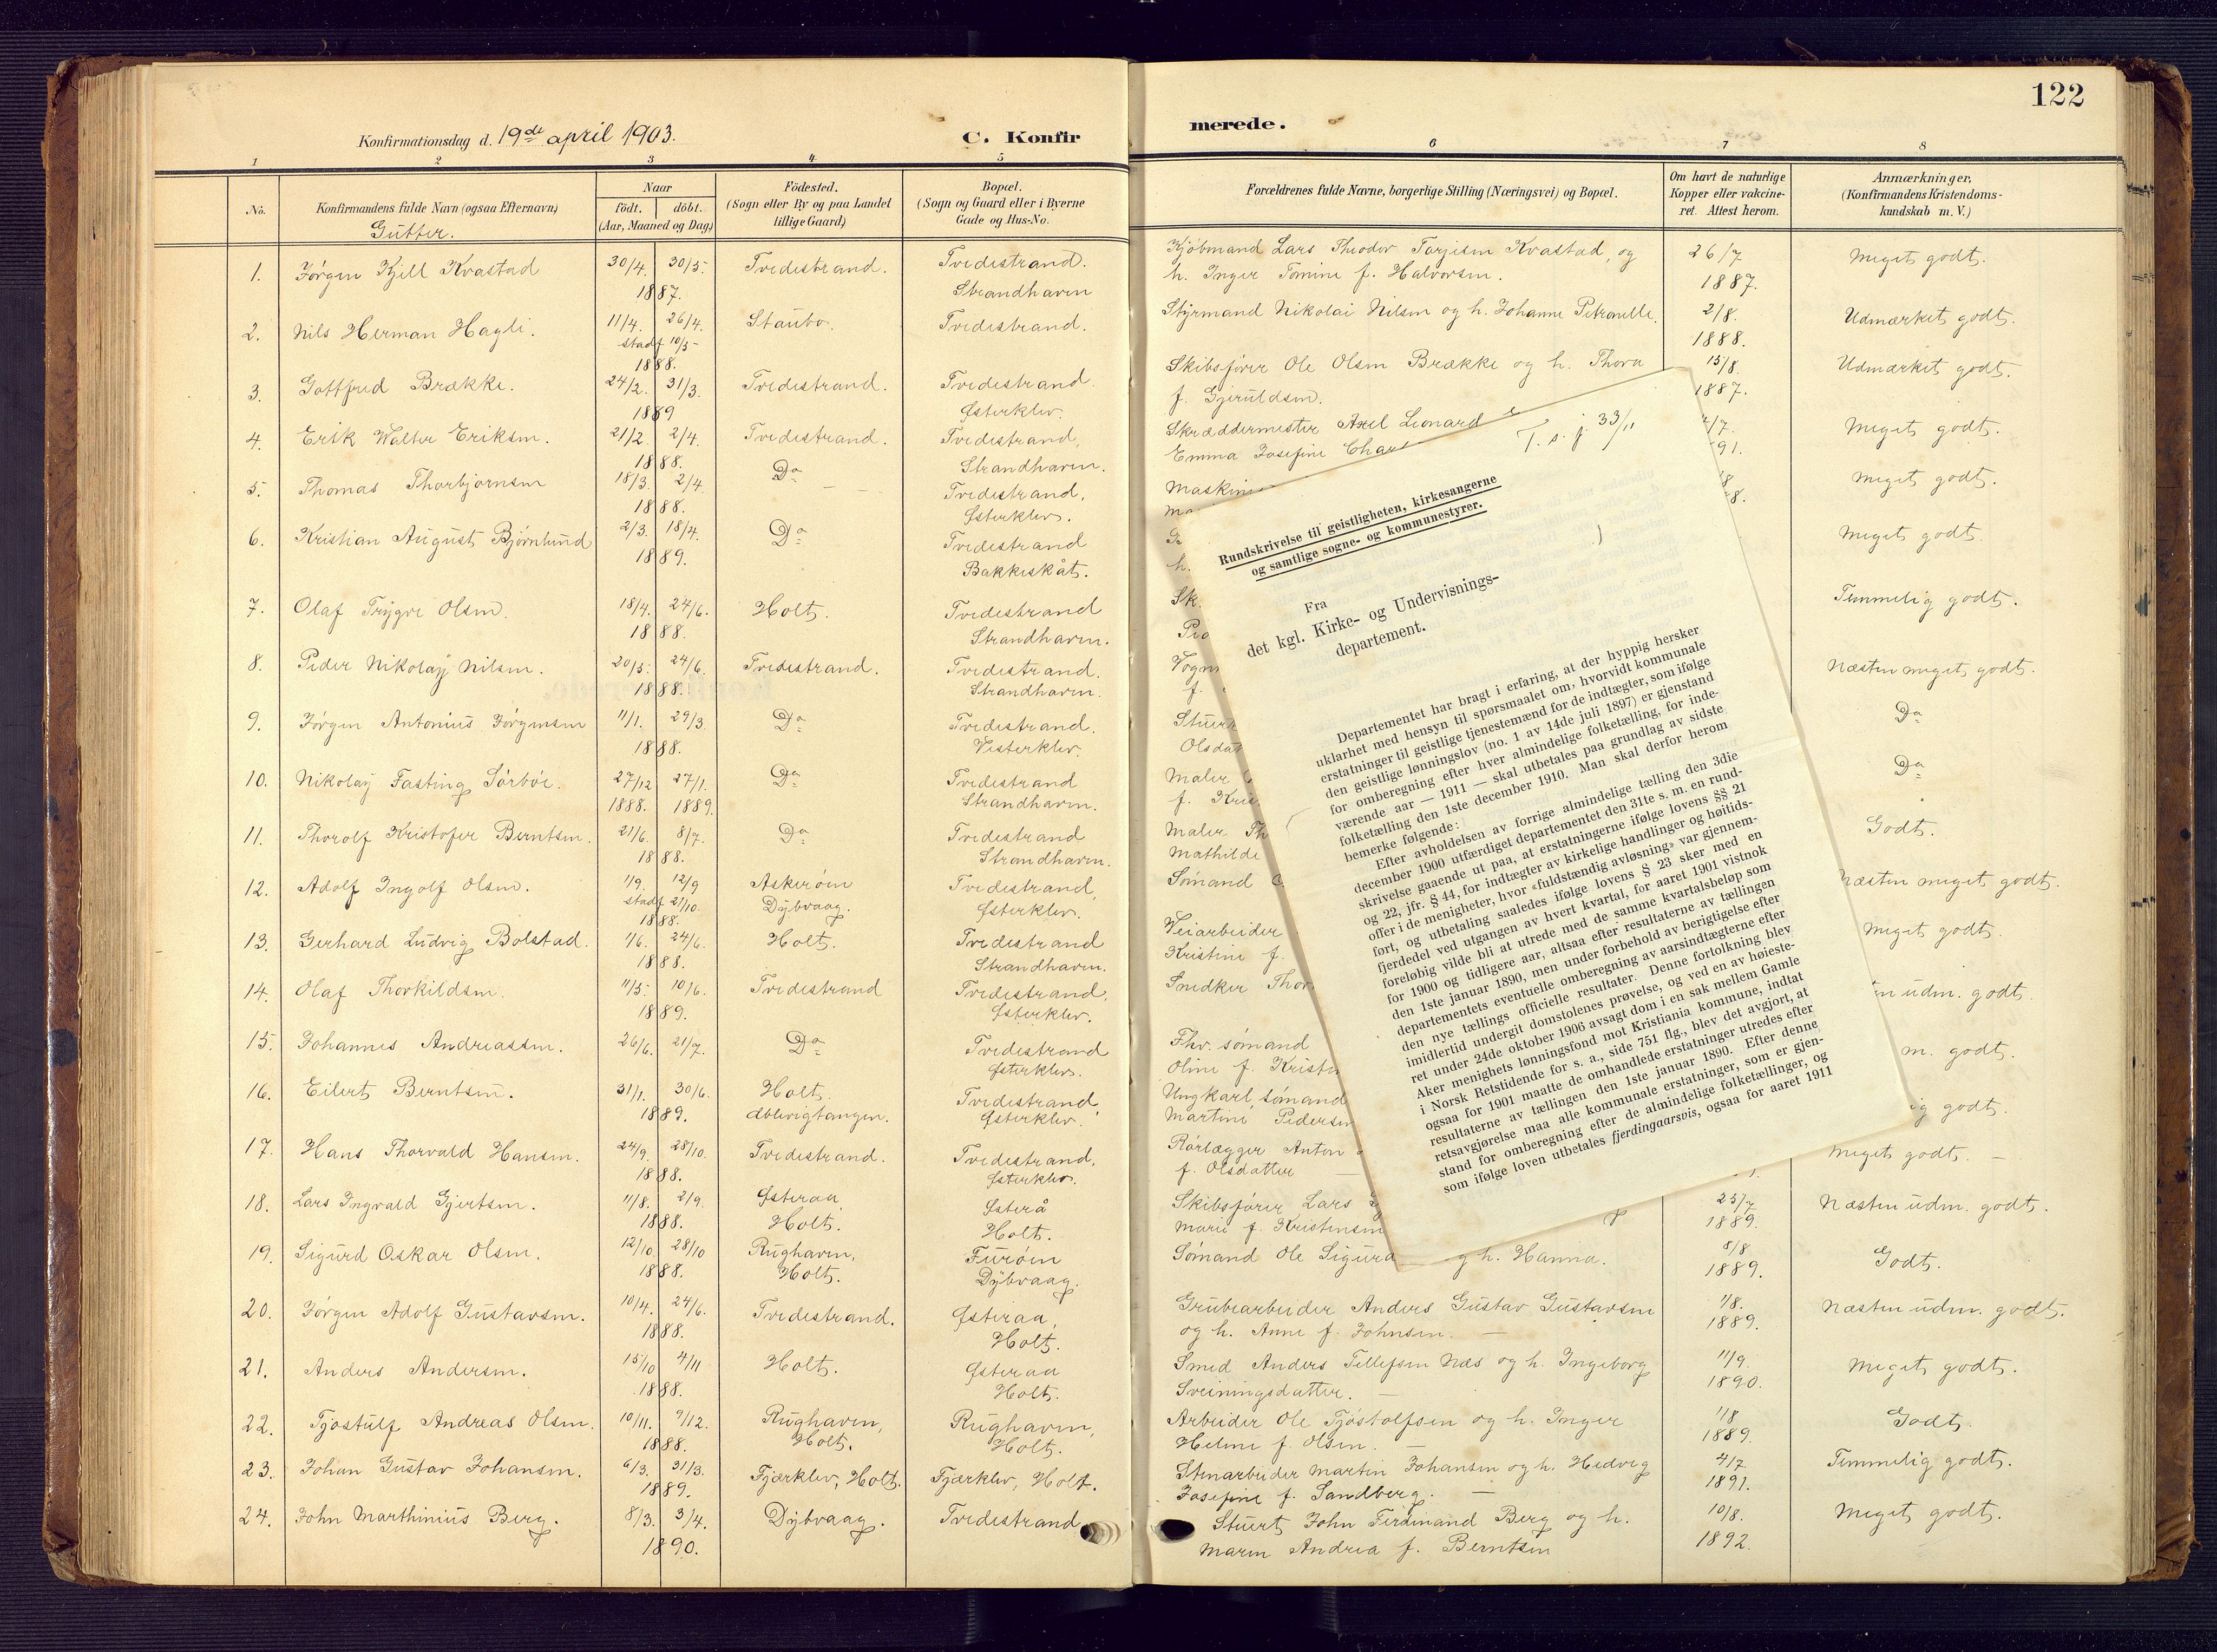 122
Konfirmationsdag d. 19de april 1903.
C. Konfirmerede.
1 2 3 4 5 6 7 8
No.
Konfirmandens fulde Navn (ogsaa Efternavn)
Gutter.
Naar
født. | döbt.
(Aar, Maaned og Dag)
Födested.
(Sogn eller By og paa Landet
tillige Gaard)
Bopæl.
(Sogn og Gaard eller i Byerne
Gade og Hus-No.
Forældrenes fulde Navne, borgerlige Stilling (Næringsvei) og Bopæl.
Om havt de naturlige
Kopper eller vakcine-
ret. Attest herom.
Anmærkninger.
(Konfirmandens Kristendoms-
kundskab m. V.)
1. Jørgen Kjell Kvastad 30/4. 30/5. Tvedestrand. Tvedestrand. Kjøbmand Lars Theodor Tarjesen Kvastad, og 26/7 Meget godt.
1887. Strandhaven h. Inger Tomine f. Halvorsen. 1887.
2. Nils Herman Hagli. 11/4. 26/4. Staubo. Tvedestrand. Styrmand Nikolai Nilsen og h. Johanne Petronelle. 2/8. Udmærket godt.
stadf 10/5 1888. 1888.
3. Gottfred Brække. 24/2. 31/3. Tvedestrand. Tvedestrand. Skibsfører Ole Olsen Brække og h. Thora 15/8. Udmærket godt.
1889 Østerklev. f. Gjeruldsen. 1887.
4. Erik Walter Eriksen. 21/2. 2/4. Tvedestrand. Tvedestrand, Skræddermester Axel Leonard 4/7. Meget godt.
1888. Strandhaven. Emma Josefine 91.
5. Thomas Thorbjørnsen 18/3. 2/4. Do Tvedestrand, Meget godt.
1888. Østerklev. 8.
6. Kristian August Bjørnlund 2/3. 18/4. Do Tvedestrand Meget godt.
1889. Bakkeskåt. h.
7. Olaf Trygve Olsen. 18/4. 24/6. Holt. Tvedestrand Sk. Temmelig godt.
1888. Strandhaven.
8. Peder Nikolay Nilsen. 20/5. 24/6. Tvedestrand. Tvedestrand. Næsten meget godt.
1888. Strandhaven. f.
9. Jørgen Antonius Jørgensen 11/1. 29/3. Do Tvedestrand. Do
1888. Vesterklev.
10. Nikolay Fasting Sørbøe. 27/12 27/1. Do Tvedestrand Maler Do
1888. 1889. Strandhaven. f.
11. Thorolf Kristofer Berntsen. 21/6. 8/7. Do Tvedestrand Maler Th Godt.
1888. Strandhaven. Mathilde
12. Adolf Ingolf Olsen. 1/9. 12/9 Askerøen Tvedestrand, Sømand Næsten meget godt.
stadf 21/10. 1888. Dybvaag. Østerklev.
13. Gerhard Ludvig Bolstad. 1/6. 24/6. Holt. Tvedestrand Veiarbeider Meget godt.
1888. Strandhaven. Kristine f.
14. Olaf Thorkildsen. 11/5. 10/6. Tvedestrand Tvedestrand, Snedker Thor udm. godt.
1889. Østerklev.
15. Johannes Andreassen. 26/6. 21/7. Do Tvedestrand Fhv. sømand m. godt.
Østerklev. Oline f.
16. Eilert Berntsen. 31/1. 30/6. Holt. Tvedestrand Ungkarl sømand ig godt.
1889. Østerklev. Martine Pedersen
17. Hans Thorvald Hansen. 24/9. 28/10. Tvedestrand. Tvedestrand, Rørlægger Anton Meget godt.
1888. Østerklev. f. Olsdatter
18. Lars Ingvald Gjertsen. 11/8. 2/9. Østeraa Østerå Skibsfører Lars 25/7 Næsten udm. godt.
1888. Holt. Holt. Marie f. Kristensen 1889.
19. Sigurd Oskar Olsen. 12/10. 28/10 Rughaven, Furøen Sømand Ole Sigurd g h. Hanna. 8/8 Godt.
1888. Holt. Dybvaag. 1889.
20. Jørgen Adolf Gustavsen. 10/4. 24/6. Tvedestrand. Østeraa, Grubearbeider Anders Gustav Gustavsen 1/8. Næsten udm. godt.
1888. Holt. og h. Anne f. Johnsen. 1889.
21. Anders Andersen. 15/10 4/11 Holt. Østeraa Smed Anders Tellefsen Næs og h. Ingeborg 11/9. Meget godt.
1888. Holt. Sveiningsdatter. 1890.
22. Tjøstulf Andreas Olsen. 10/11. 9/12. Rughaven, Rughaven, Arbeider Ole Tjøstolfsen og h. Inger 1/8 Godt.
1888. Holt. Holt. Helene f. Olsen. 1889.
23. Johan Gustav Johansen. 6/3. 31/3. Fjærklev, Holt. Fjærklev, Holt. Stenarbeider Martin Johansen og h. Hedvig 4/7 Temmelig godt.
1889. Josefine f. Sandberg. 1891.
24. John Marthinius Berg. 8/3. 3/4. Dybvaag. Tvedestrand Stuert John Ferdinand Berg og h. 10/8. Meget godt.
1890. Maren Andrea f. Berntsen 1892.
T. s. j. 33/11
Rundskrivelse til geistligheten, kirkesangerne
og samtlige sogne- og kommunestyrer.
Fra
det kgl. Kirke- og Undervisnings-
departement.
Departementet har bragt i erfaring, at der hyppig hersker
uklarhet med hensyn til spørsmaalet om, hvorvidt kommunale
erstatninger til geistlige tjenestemænd for de indtægter, som ifølge
den geistlige lønningslov (no. 1 av 14de juli 1897) er gjenstand
for omberegning efter hver almindelige folketælling, for inde-
værende aar — 1911 — skal utbetales paa grundlag av sidste
folketælling den 1ste december 1910. Man skal derfor herom
bemerke følgende:
Efter avholdelsen av forrige almindelige tælling den 3die
december 1900 utfærdiget departementet den 31te s. m. en rund-
skrivelse gaaende ut paa, at erstatningerne ifølge lovens §§ 21
og 22, jfr. § 44, for indtægter av kirkelige handlinger og høitids-
offer i de menigheter, hvor «fuldstændig avløsning» var gjennem-
ført, og utbetaling saaledes ifølge lovens § 23 sker med en
fjerdedel ved utgangen av hvert kvartal, for aaret 1901 vistnok
foreløbig vilde bli at utrede med de samme kvartalsbeløp som
for 1900 og tidligere aar, altsaa efter resultaterne av tællingen
den 1ste januar 1890, men under forbehold av berigtigelse efter
departementets eventuelle omberegning av aarsindtægterne efter
den nye tællings officielle resultater. Denne fortolkning blev
imidlertid undergit domstolenes prøvelse, og ved en av høieste-
ret under 24de oktober 1906 avsagt dom i en sak mellem Gamle
Aker menighets lønningsfond mot Kristiania kommune, indtat
i Norsk Retstidende for s. a., side 751 flg., blev det avgjort, at
ogsaa for 1901 maatte de omhandlede erstatninger utredes efter
resultaterne av tællingen den 1ste januar 1890. Efter denne
retsavgjørelse maa alle kommunale erstatninger, som er gjen-
stand for omberegning efter de almindelige folketællinger, og
som ifølge loven utbetales fjerdingaarsvis, ogsaa for aaret 1911